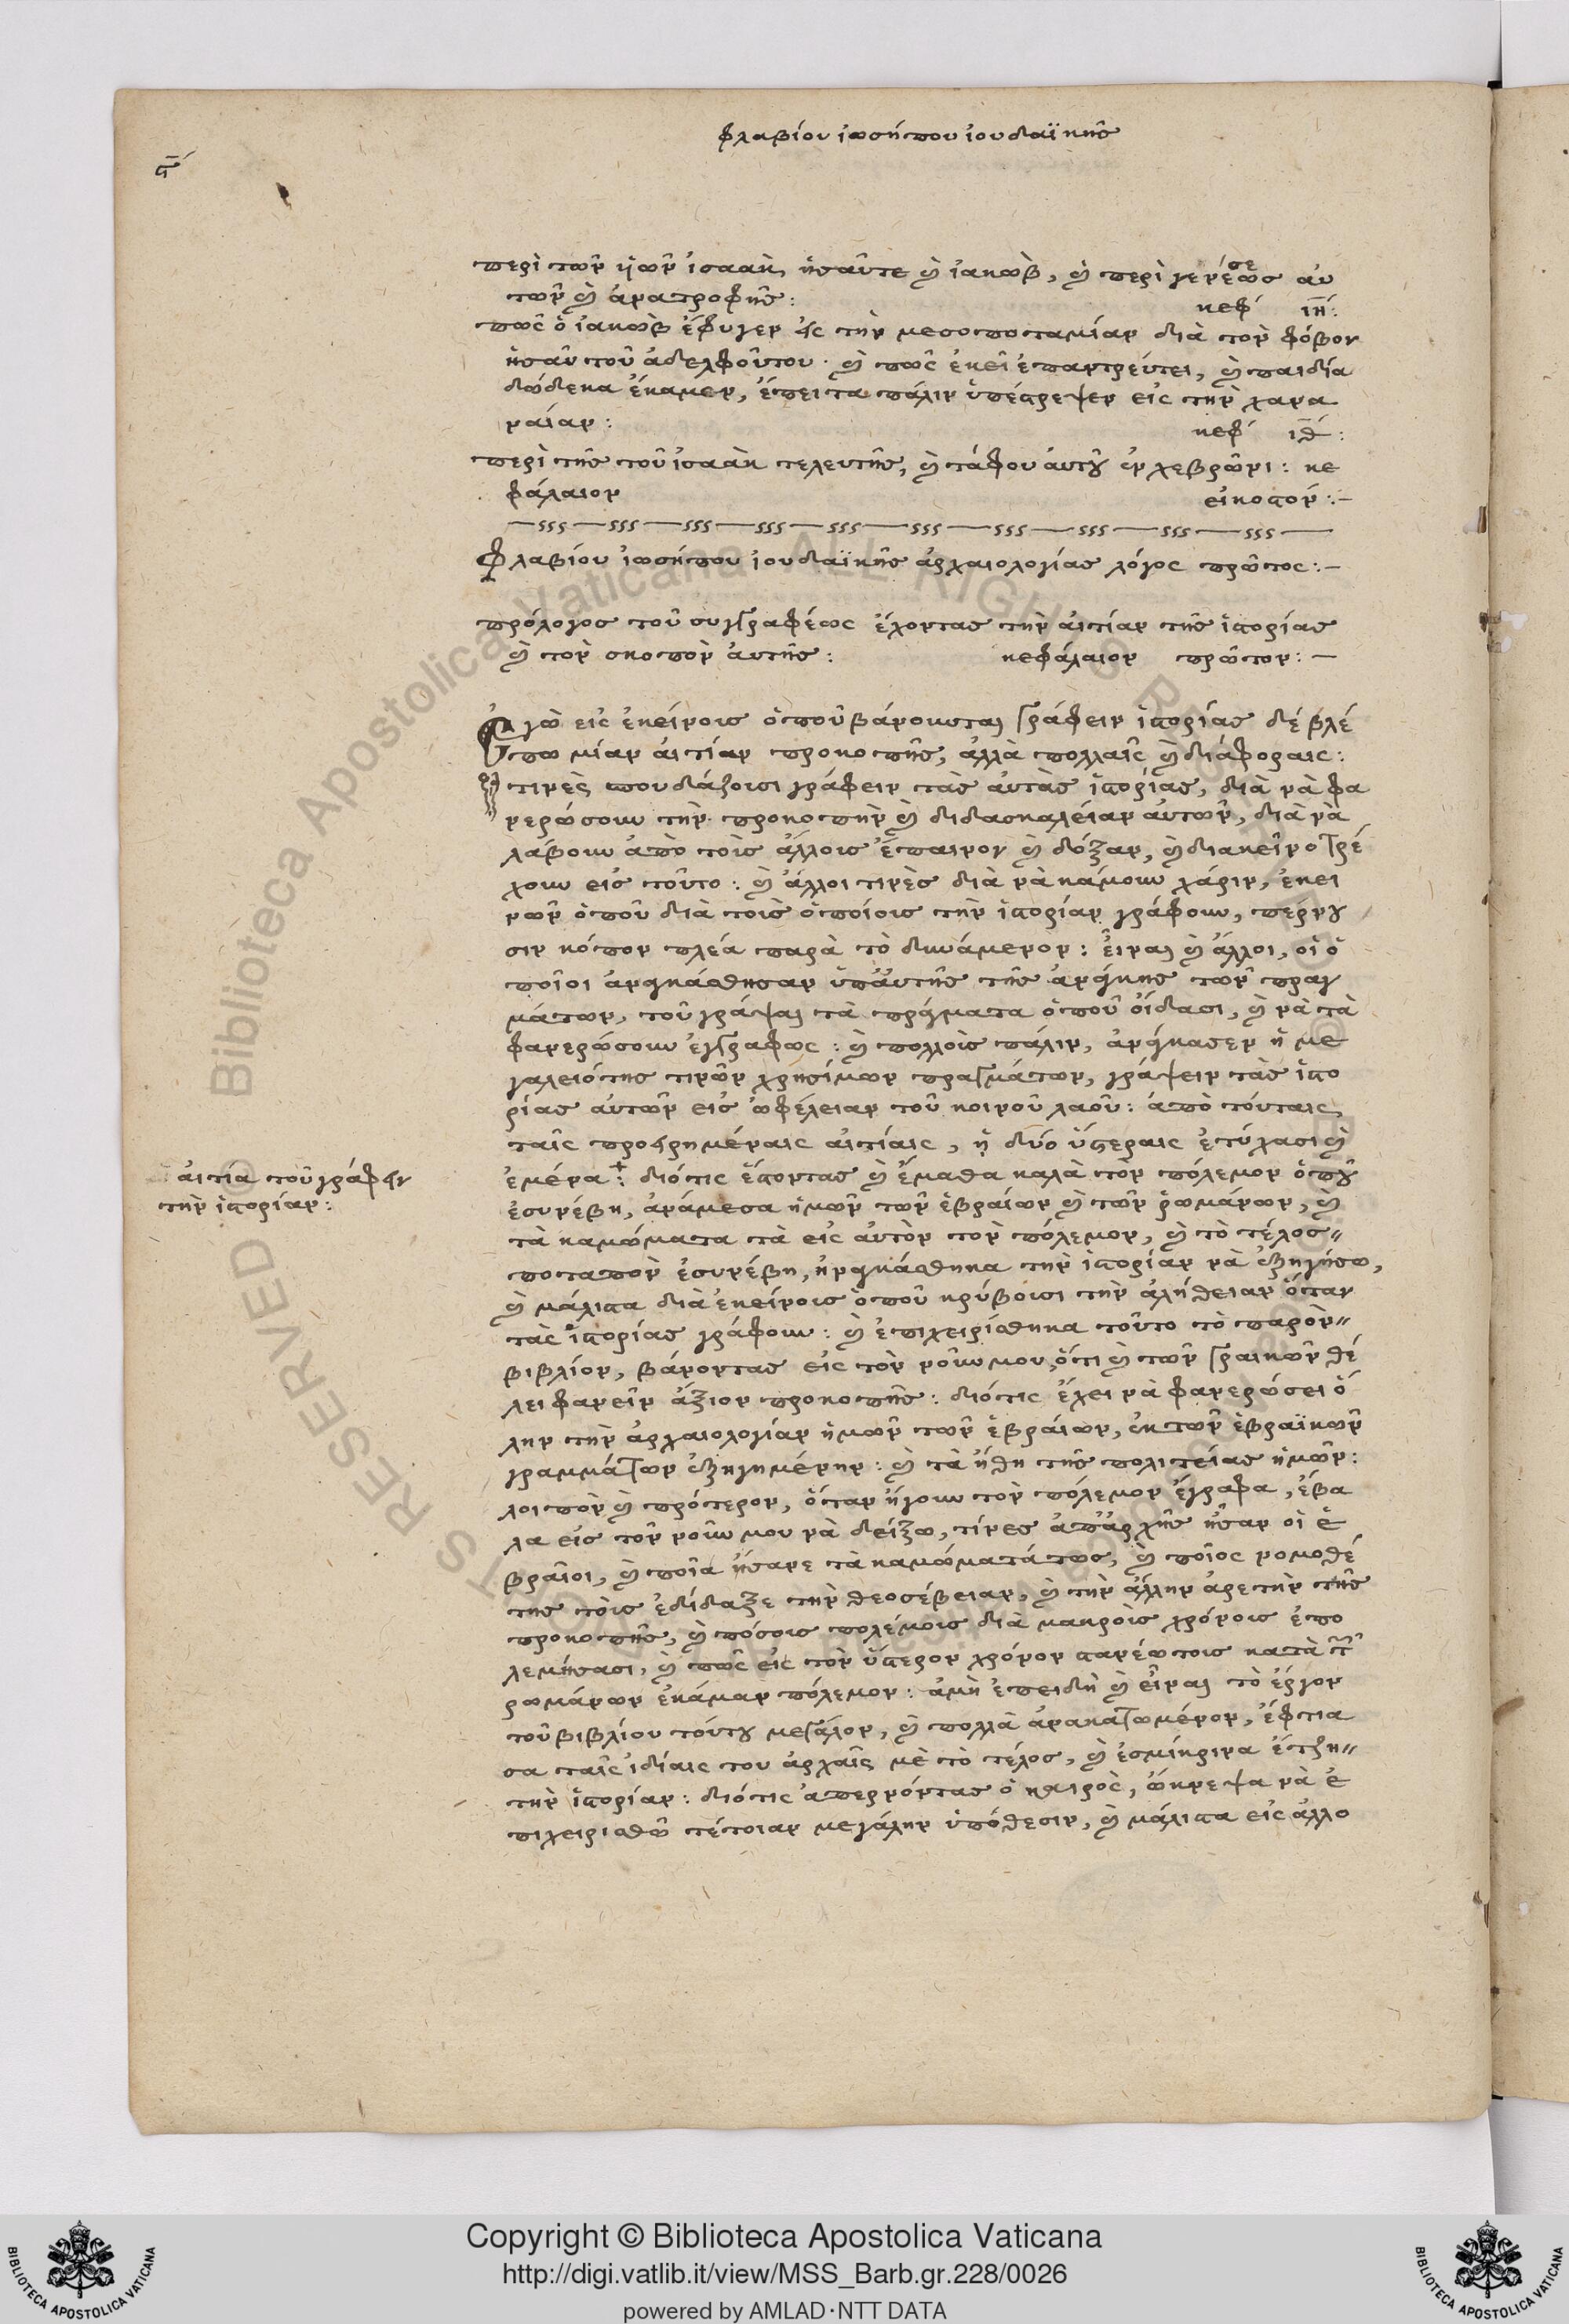 φλαβίου ἰωσήπου ἰουδαϊκῆς
περὶ τῶν ὑῶν ἰσαὰκ, ἠσαῦτε καὶ ἰακὼβ, καὶ περὶ γενέσεως αὐ
τῶν καὶ ἀνατροφῆς: κεφ ιη:
πῶς ὁ ἰακὼβ ἔφυγεν εἰς τὴν μεσοποταμίαν διὰ τὸν φόβον
ἠσαῦ τοῦ ἀδελφοῦτου· καὶ πῶς ἐκεῖ ἐπαντρεύτει, καὶ παιδία
δώδεκα ἔκαμεν, ἔπειτα πάλιν ὑπέστρεψεν εἰς τὴν χανα
ναίαν: κεφ ιθ:
περὶ τῆς τοῦ ἰσαὰκ τελευτῆς, καὶ τάφου αὐτοῦ ἐν χεβρῶνι: κε
φάλαιον εἰκοστόν:–
Φλαβίου ἰωσήπου ἰουδαϊκῆς ἀρχαιολογίας λόγος πρῶτος:–
πρόλογος τοῦ συγγραφέως ἔχοντας τὴν αἰτίαν τῆς ἱστορίας
καὶ τὸν σκοπὸν αὐτῆς: κεφάλαιον πρῶτον:–
Ἐγὼ εἰς ἐκείνοις ὁποῦ βάνουσται γράφειν ἱστορίας δὲ βλέ
πω μίαν αἰτίαν προκοπῆς, ἀλλὰ πολλαῖς καὶ διάφοραις:
τινὲς σπουδάζουσι γράφειν τὰς αὐτὰς ἱστορίας, διὰ νὰ φα
νερώσουν τὴν προκοπὴν καὶ διδασκαλείαν αὐτῶν, διὰ νὰ
λάβουν ἀπὸ τοὶς ἄλλοις ἔπαινον καὶ δόξαν, καὶ διακεῖνο τρέ
χουν εἰς τοῦτο: καὶ ἄλλοι τινὲς διὰ νὰ κάμουν χάριν, ἐκει
νῶν ὁποῦ διὰ τοὶς ὁποίοις τὴν ἱστορίαν γράφουν, πέρνου
σιν κόπον πλέα παρὰ τὸ δυνάμενον: εἶναι καὶ ἄλλοι, οἱ ὁ
ποῖοι ἀναγκάσθησαν ὑπ' αὐτῆς τῆς ἀνάγκης τῶν πραγ
μάτων, τοῦ γράψαι τὰ πράγματα ὁποῦ οἴδασι, καὶ νὰ τὰ
φανερώσουν ἐγγράφως: καὶ πολλοὶς πάλιν, ἀνάγκασεν ἡ με
γαλειότης τινῶν χρησίμων πραγμάτων, γράψειν τὰς ἱστο
ρίας αὐτῶν εἰς ὠφέλειαν τοῦ κοινοῦ λαοῦ: ἀπὸ τούταις
ταῖς προειρημέναις αἰτίαις, ἡ δύο ὕστεραις ἐτύχασι καὶ
ἐμένα: διότις ἔστοντας καὶ ἔμαθα καλὰ τὸν πόλεμον ὁποῦ
ἐσυνέβη, ἀνάμεσα ἡμῶν τῶν ἑβραίων καὶ τῶν ῥωμάνων, καὶ
τὰ καμώματα τὰ εἰς αὐτὸν τὸν πόλεμον, καὶ τὸ τέλος
ποταπὸν ἐσυνέβη, ἠναγκάσθηκα τὴν ἱστορίαν νὰ ἐξηγήσω,
αἰτία τοῦ γράφειν
τὴν ἱστορίαν:
καὶ μάλιστα διὰ ἐκείνοις ὁποῦ κρύβουσι τὴν ἀλήθειαν ὅταν
τὰς ἱστορίας γράφουν: καὶ ἐπιχειρίσθηκα τοῦτο τὸ παρὸν
βιβλίον, βάνοντας εἰς τὸν νοῦν μου, ὅτι καὶ τῶν γραικῶν θέ
λει φανεῖν ἄξιον προκοπῆς: διότις ἔχει νὰ φανερώσει ὅ
λην τὴν ἀρχαιολογίαν ἡμῶν τῶν ἑβραίων, ἐκ τῶν ἑβραϊκῶν
γραμμάτων ἐξηγημένην: καὶ τὰ ἤθη τῆς πολιτείας ἡμῶν:
λοιπὸν καὶ πρότερον, ὅταν ἤγουν τὸν πόλεμον ἔγραφα, ἔβα
λα εἰς τὸν νοῦν μου νὰ δείξω, τίνες ἀπ' ἀρχῆς ἦσαν οἱ ἑ
βραῖοι, καὶ ποῖα ἤσανε τὰ καμώματάτως, καὶ ποῖος νομοθέ
της τοὶς ἐδίδαξε τὴν θεοσέβειαν, καὶ τὴν ἄλλην ἀρετὴν τῆς
προκοπῆς, καὶ πόσοις πολέμοις διὰ μακροὶς χρόνοις ἐπο
λεμήσασι, καὶ πῶς εἰς τὸν ὕστερον χρόνον στανέω τοις κατὰ τῶν
ρωμάνων ἐκάμαν πόλεμον: ἀμὴ ἐπειδὴ καὶ εἶναι τὸ ἔργον
τοῦ βιβλίου τούτου μεγάλον, καὶ πολλὰ ἀνακατωμένον, ἔφτια
σα ταῖς ἰδίαις του ἀρχαῖς μὲ τὸ τέλος, καὶ ἐσμίκρινα ἔτζη
τὴν ἱστορίαν: διότις ἀπερνόντας ὁ καιρὸς, ὤκνεψα νὰ ἐ
πιχειρισθῶ τέτοιαν μεγάλην ὑπόθεσιν, καὶ μάλιστα εἰς ἄλλο
© Biblioteca Apostolica Vaticana ALL RIGHTS RESERVED
Copyright © Biblioteca Apostolica Vaticana
http://digi.vatlib.it/view/MSS_Barb.gr.228/0026
powered by AMLAD·NTT DATA
BIBLIOTECA APOSTOLICA VATICANA
BIBLIOTECA APOSTOLICA VATICANA